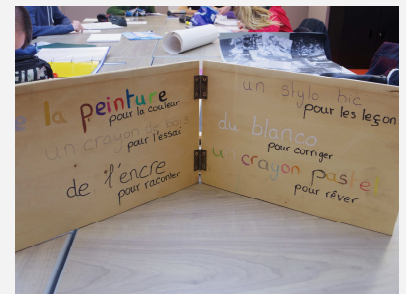 de la peinture
pour la couleur
un crayon de bois
pour l'essai
de l'encre
pour raconter
un stylo bic
pour les leçon
du blanco
pour corriger
un crayon pastel
pour rêver